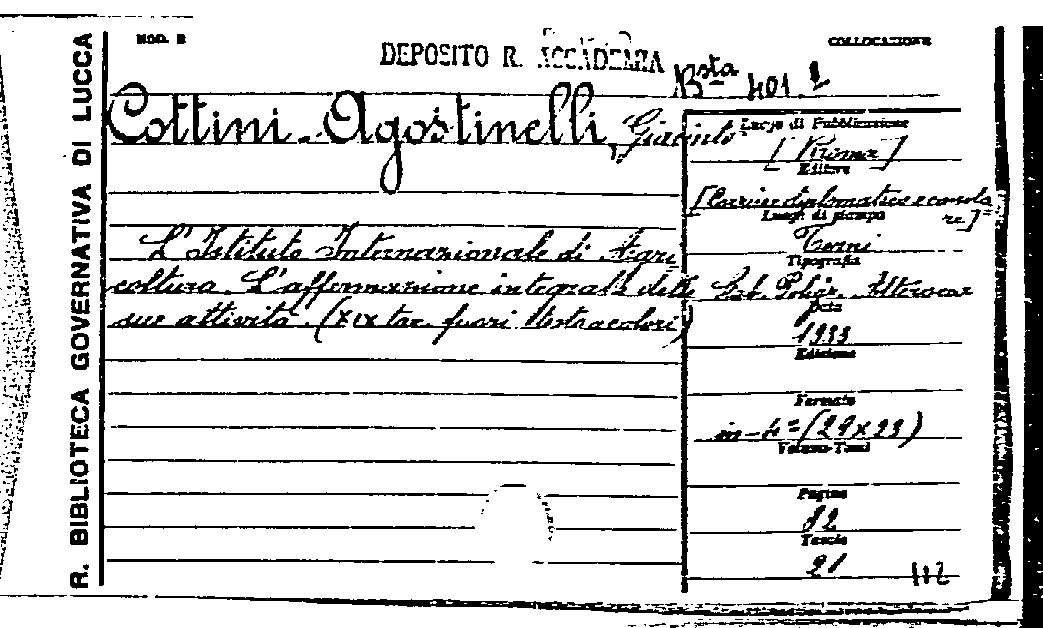 R. BIBLIOTECA GOVERNATIVA DI LUCCA
MOD. B
DEPOSITO R. ACCADEMIA
COLLOCAZIONE
Bsta 401. 2
Cottini-Agostinelli, Giacinto
L'Istituto Internazionale di Agri
coltura. L'affermazione integrale delle
sue attività. (XIX tav. fuori testo a colori)
Luogo di Pubblicazione
[Roma]
Editore
[Corriere diplomatico e consola
re]
Luogo di stampa
Terni
Tipografia
Stab. Poligr. Alterocca
Data
1933
Edizione
Formato
in-4° (29x23)
Volume-Tomi
Pagine
82
Tavole
21
112